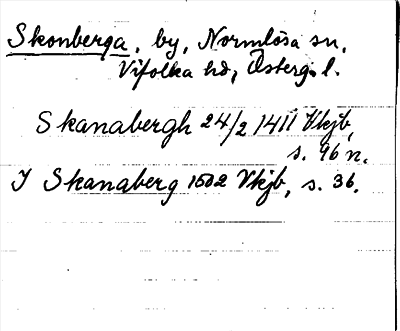 Skonberga, by, Normlösa sn,
Vifolka hd, Österg. l.
Skanabergh 24/2 1411 Vkjb,
s. 96 n.
I Skanaberg 1502 Vkjb, s. 36.